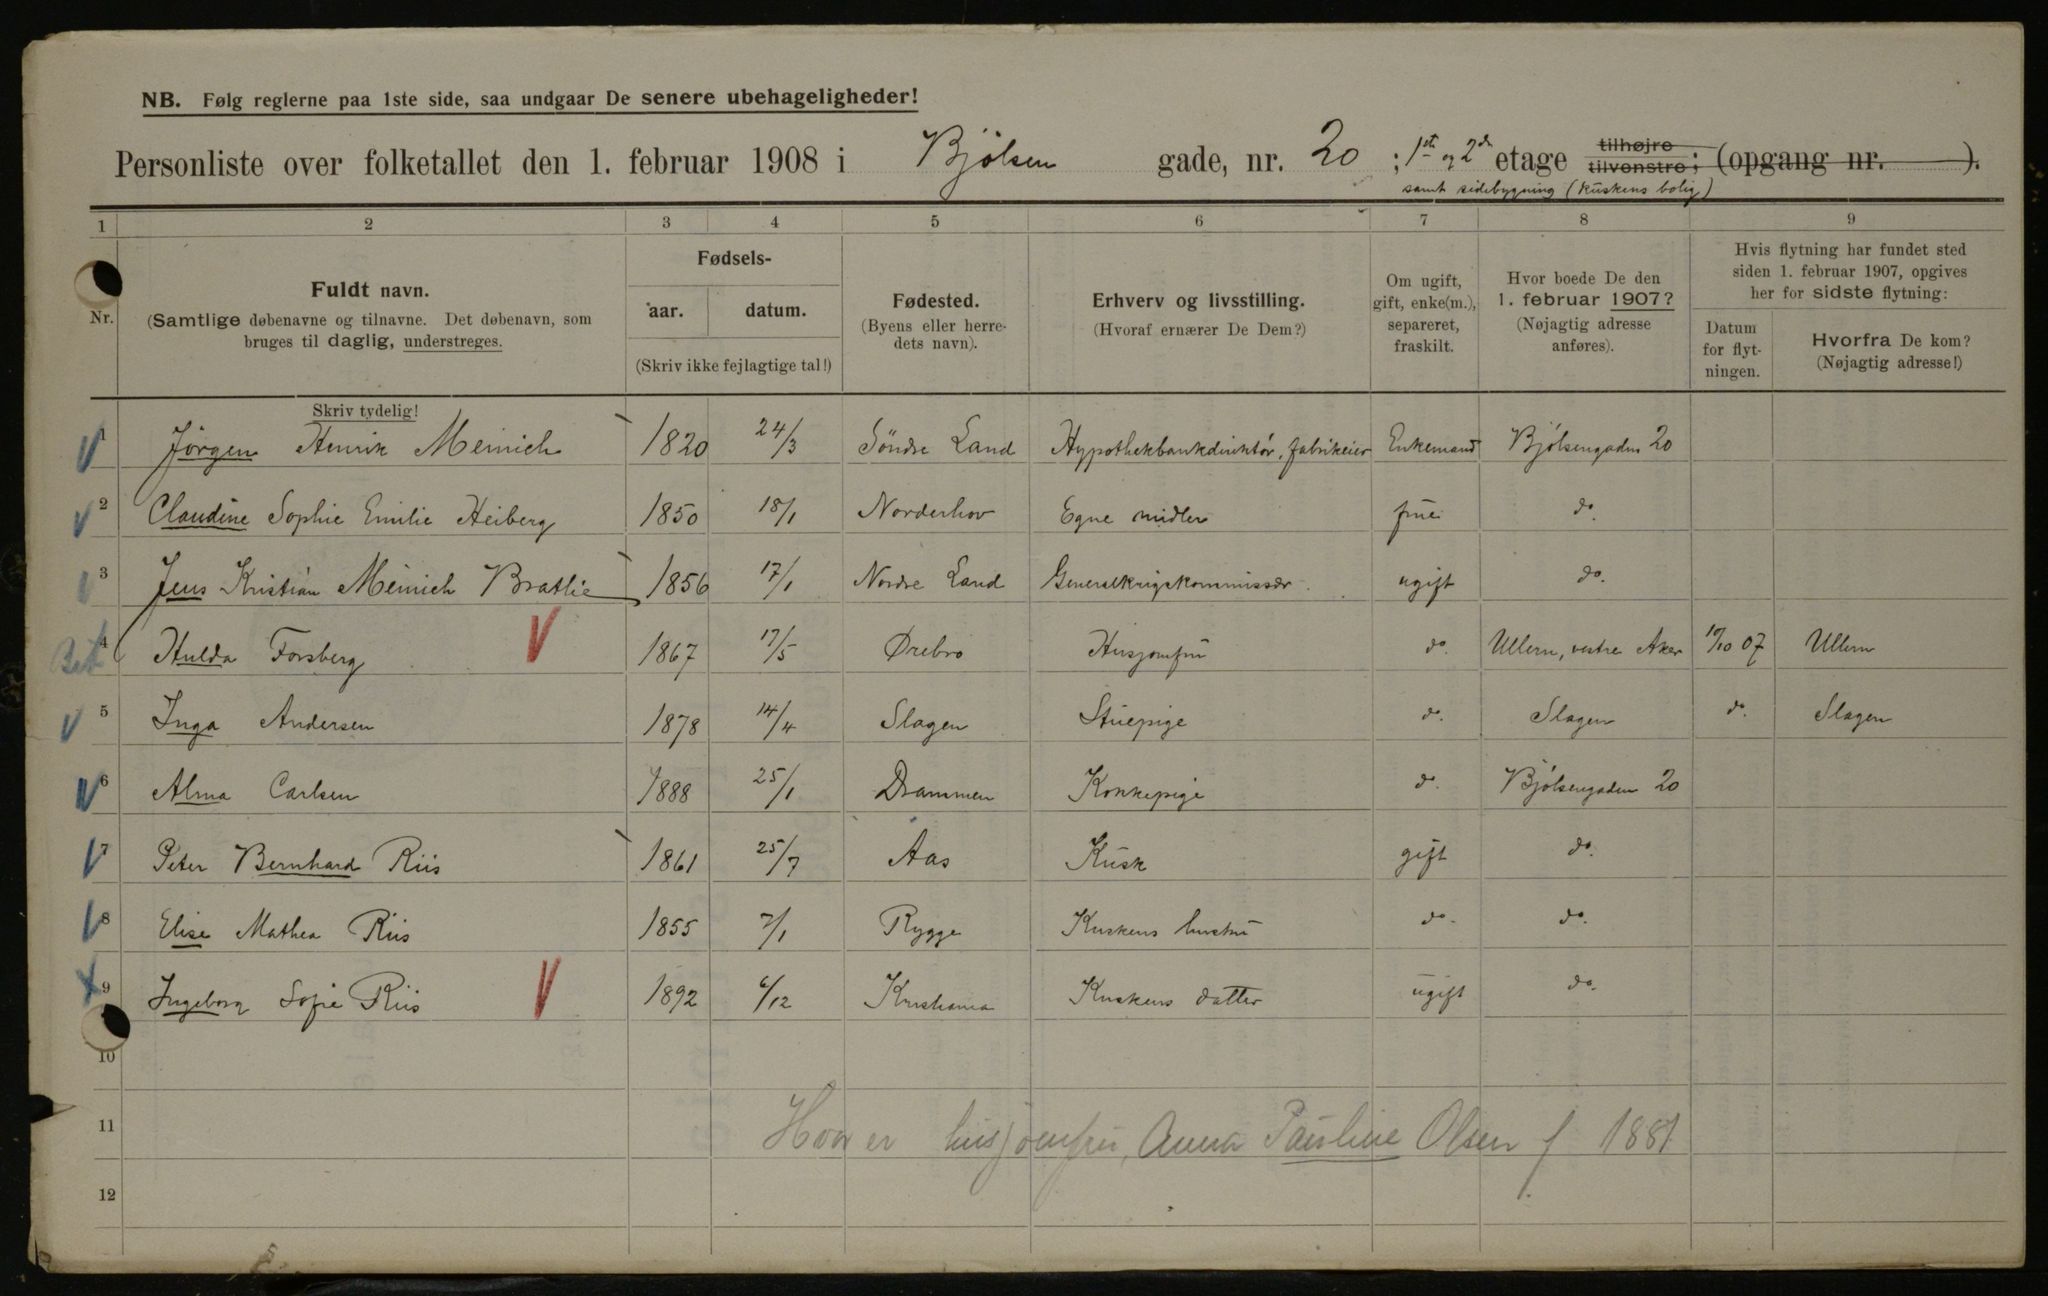 NB. Følg reglerne paa 1ste side, saa undgaar De senere ubehageligheder!
Personliste over folketallet den 1. februar 1908 i Bjølsen gade, nr. 20 ; 1ste og 2den etage tilhøjre tilvenstre; (opgang nr. ).
samt sidebygning (kuskens bolig)
1 2 3 4 5 6 7 8 9
Nr.
Fuldt navn.
(Samtlige døbenavne og tilnavne. Det døbenavn, som
bruges til daglig, understreges.
Skriv tydelig!
Fødsels-
aar. datum.
(Skriv ikke fejlagtige tal!)
Fødested.
(Byens eller herre-
dets navn).
Erhverv og livsstilling.
(Hvoraf ernærer De Dem?)
Om ugift,
gift, enke(m.),
separeret,
fraskilt.
Hvor boede De den
1. februar 1907?
(Nøjagtig adresse
anføres).
Hvis flytning har fundet sted
siden 1. februar 1907, opgives
her for sidste flytning:
Datum
for flyt-
ningen.
Hvorfra De kom?
(Nøjagtig adresse!)
1 Jørgen Henrik Meinich 1820 24/3 Söndre Land Hypothekbankdirektør, fabrikeier Enkemand Bjølsengaden 20
2 Claudine Sophie Emilie Heiberg 1850 18/1 Norderhov Egne midler frue do.
3 Jens Kristian Meinich Bratlie 1856 17/1 Nordre Land Generalkrigskommissær. ugift do.
Bet 4 Hulda Forsberg 1867 17/5 Ørebro Husjomfru do. Ullern, vestre Aker /10 07 Ullern
5 Inga Andersen 1878 14/4 Slagen Stuepige do. Slagen do. Slagen
6 Alma Carlsen 1888 25/1 Drammen Kokkepige do. Bjølsengaden 20
7 Peter Bernhard Riis 1861 25/7 Aas Kusk gift do.
8 Elise Mathea Riis 1855 7/1 Rygge Kuskens hustru do. do.
9 Ingeborg Sofie Riis 1892 6/12 Kristiania Kuskens datter ugift do.
10
11 Hvor er husjomfru, Anna Pauline Olsen f 1881
12